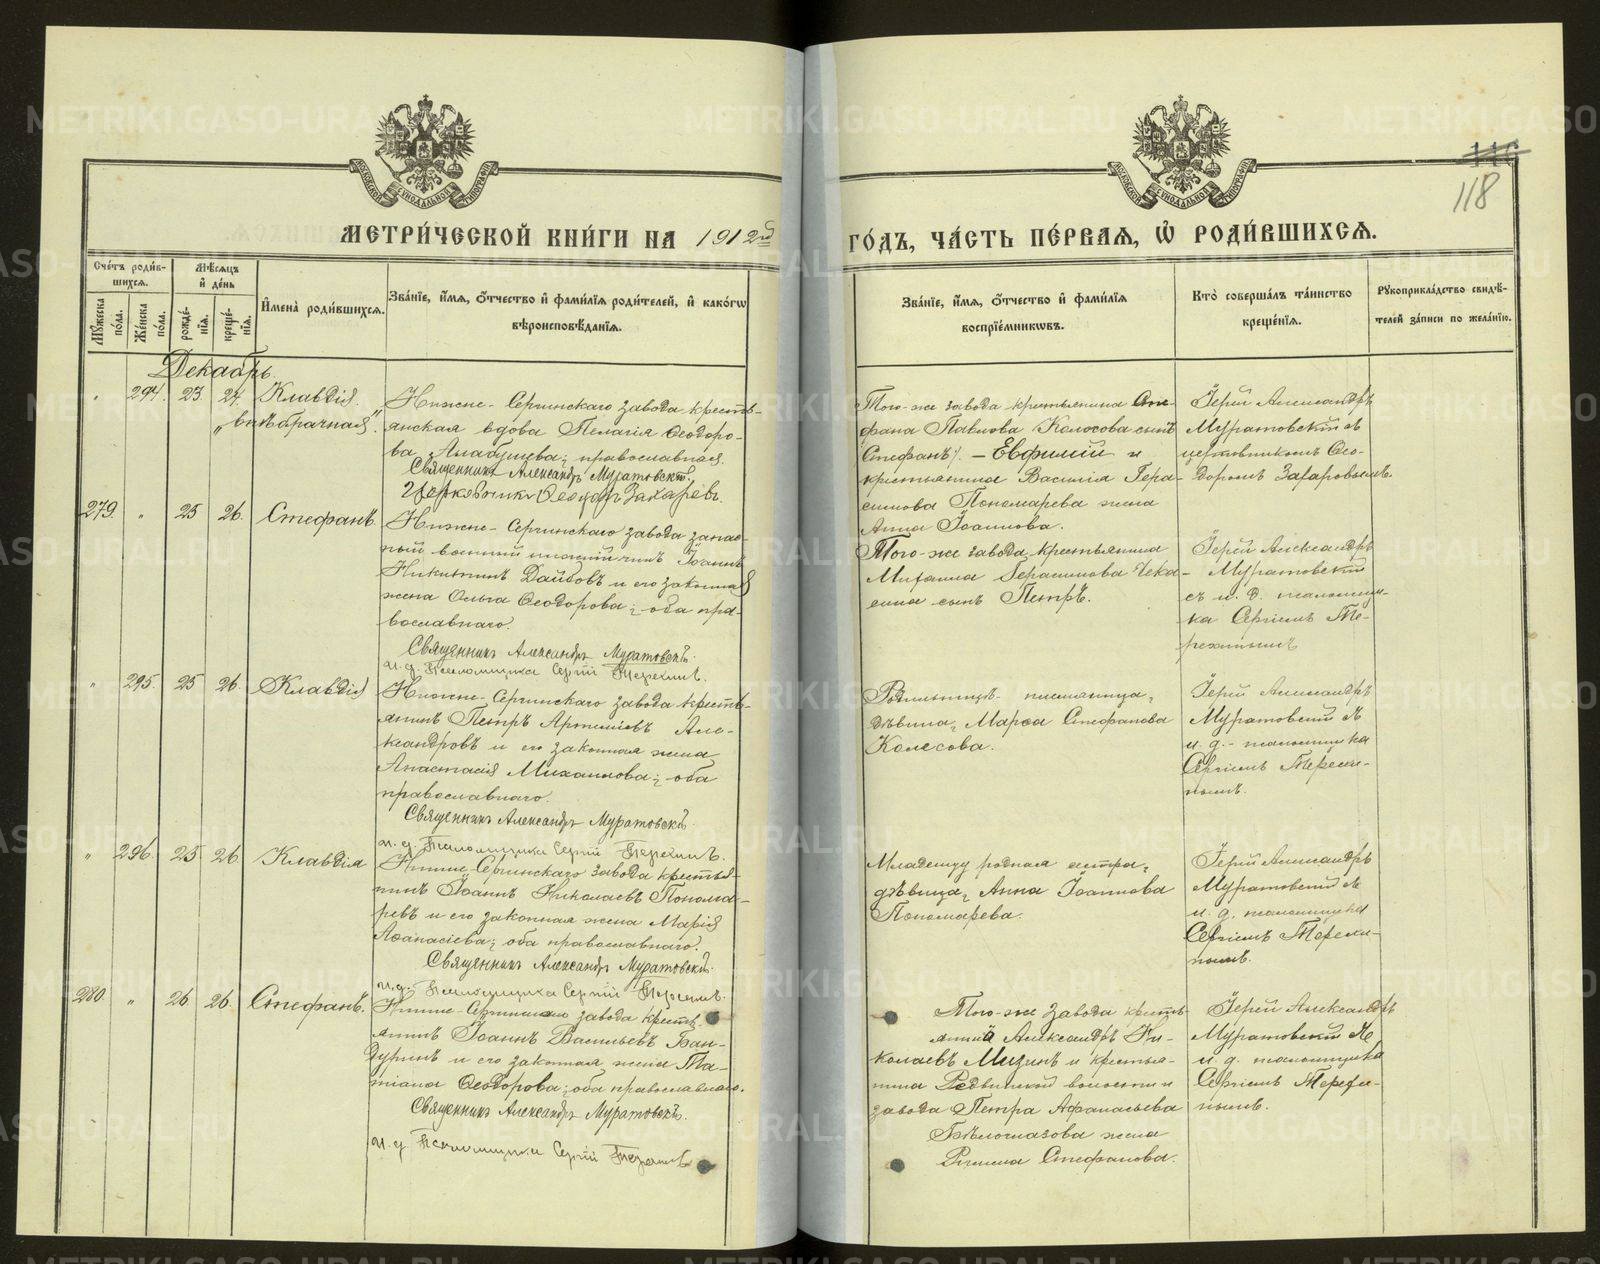 МЕТРИ́ЧЕСКОЙ КНИ́ГИ НА 1912 ГО́ДЪ, ЧА́СТЬ ПЕ́РВАЯ, Ѡ҆ РОДИ́ВШИХСѦ.
116
118
Сче́тъ роди́в-
шихсѧ.
Мѹ́жеска по́ла.
Же́нска по́ла.
Мѣ́сѧцъ
и҆ де́нь
рожде́-
нїѧ.
креще́-
нїѧ.
И҆мена̀ роди́вшихсѧ.
Зва́нїе, и҆́мѧ, ѻ҆́тчество и҆ фами́лїѧ роди́телей, и҆ како́гѡ
вѣроисповѣ́данїѧ.
Зва́нїе, и҆́мѧ, ѻ҆́тчество и҆ фами́лїѧ
воспрїе́мникѡвъ.
Кто̀ соверша́лъ та́инство
креще́нїѧ.
Рѹкоприкла́дство свидѣ́-
телей за́писи по жела́нїю.
Декабрь.
" 294. 23. 24. Клавдія.
„внѣбрачная".
Нижне-Сергинскаго завода кресть-
янская вдова Пелагія Ѳеодоро-
ва Алабушева; православная.
Священникъ Александръ Муратовскій.
Церковникъ Ѳеодоръ Захаровъ.
Того-же завода крестьянина Сте-
фана Павлова Колосова сынъ
Стефанъ. - Евфимій и
крестьянина Василія Гера-
симова Пономарева жена
Анна Іоаннова.
Іерей Александръ
Муратовскій съ
церковникомъ Ѳео-
доромъ Захаровымъ.
279. " 25 26. Стефанъ.
Нижне-Сергинскаго завода запас-
ный военный нижній чинъ Іоаннъ
Никитинъ Дайбовъ и его законная
жена Ольга Ѳеодорова; оба пра-
вославнаго.
Священникъ Александръ Муратовскій.
и. д. Псаломщика Сергій Терехинъ.
Того-же завода крестьянина
Михаила Герасимова Чека-
сина сынъ Петръ.
Іерей Александръ
Муратовскій
съ и. д. псаломщи-
ка Сергіемъ Те-
рехинымъ
" 295. 25 26. Клавдія
Нижне-Сергинскаго завода кресть-
янинъ Петръ Артемьевъ Але-
ксандровъ и его законная жена
Анастасія Михаилова; оба
православнаго.
Священникъ Александръ Муратовскій.
и. д. Псаломщика Сергій Терехинъ.
дѣвица, Марѳа Стефанова
Колесова.
Іерей Александръ
Муратовскій съ
и. д. псаломщика
Сергіемъ Терехи-
нымъ.
" 296. 25. 26. Клавдія
Нижне-Сергинскаго завода крестья-
нинъ Іоаннъ Николаевъ Понома-
ревъ и его законная жена Марія
Аѳанасіева; оба православнаго.
Священникъ Александръ Муратовскій.
и. д. Псаломщика Сергій Терехинъ.
Младенцу родная сестра,
дѣвица, Анна Іоаннова
Пономарева.
Іерей Александръ
Муратовскій съ
и. д. псаломщика
Сергіемъ Терехи-
нымъ.
280. " 26 26. Стефанъ.
Нижне-Сергинскаго завода кресть-
янинъ Іоаннъ Васильевъ Бан-
дуринъ и его законная жена Та-
тіана Ѳеодорова; оба православнаго.
Священникъ Александръ Муратовскій.
и. д. Псаломщика Сергій Терехинъ
Того-же завода кресть-
янинъ Александръ Ни-
колаевъ Мизинъ и крестья-
нина волости и
завода Петра Афанасьева
Бѣлоглазова жена
Стефанова.
Іерей Александръ
Муратовскій съ
и. д. псаломщика
Сергіемъ Терехи-
нымъ.
METRIKI.GASO-URAL.RU